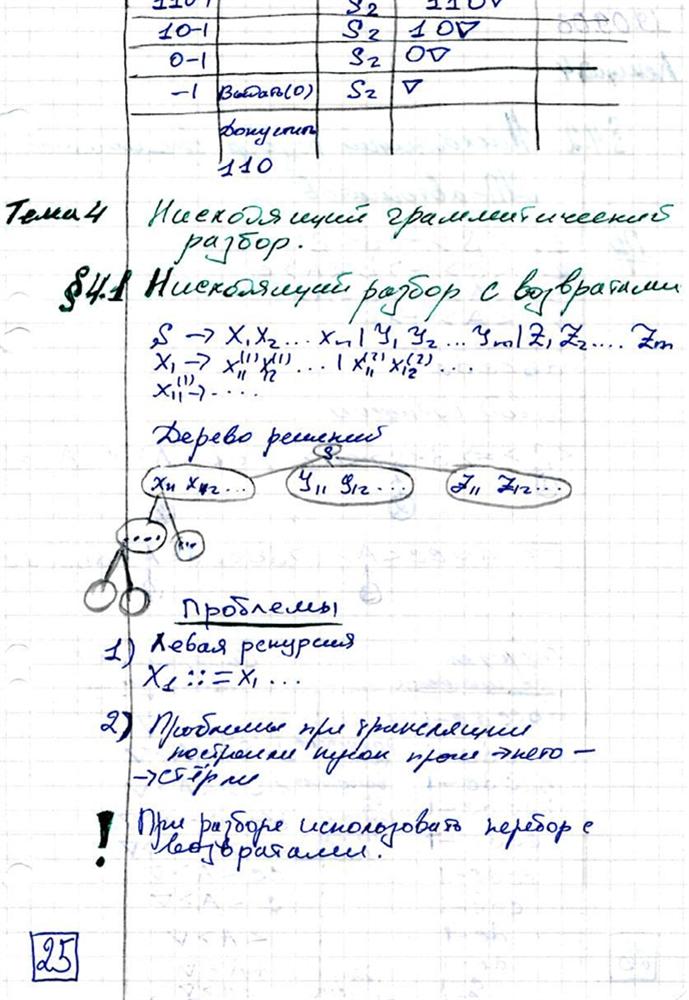 110-1 S₂ 110∇
10-1 S₂ 10∇
0-1 S₂ 0∇
-1 Выдать(0) S₂ ∇
Допустить
110
Тема 4 Нисходящий грамматический
разбор.
§4.1 Нисходящий разбор с возвратами
S → X₁X₂... Xₙ | Y₁ Y₂ ... Yₘ | Z₁ Z₂ .... Zₘ
X₁ → X₁₁⁽¹⁾ X₁₂⁽¹⁾ ... | X₁₁⁽²⁾ X₁₂⁽²⁾ ...
X₁₁⁽¹⁾ → ....
Дерево решений
S
X₁₁ X₁₂... Y₁₁ Y₁₂... Z₁₁ Z₁₂...
.... ...
Проблемы
1) Левая рекурсия
X₁ ::= X₁ ...
2) Проблемы при трансляции
построили кусок →него —
→стёрли
! При разборе использовать перебор с
возвратами.
25